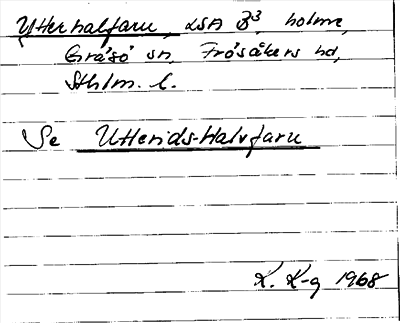 Ytterhalfaru, LSA B³, holme,
Gräsö sn, Frösåkers hd,
Sthlm. l.
Se Utterids-Halvfaru
K. K-g 1968